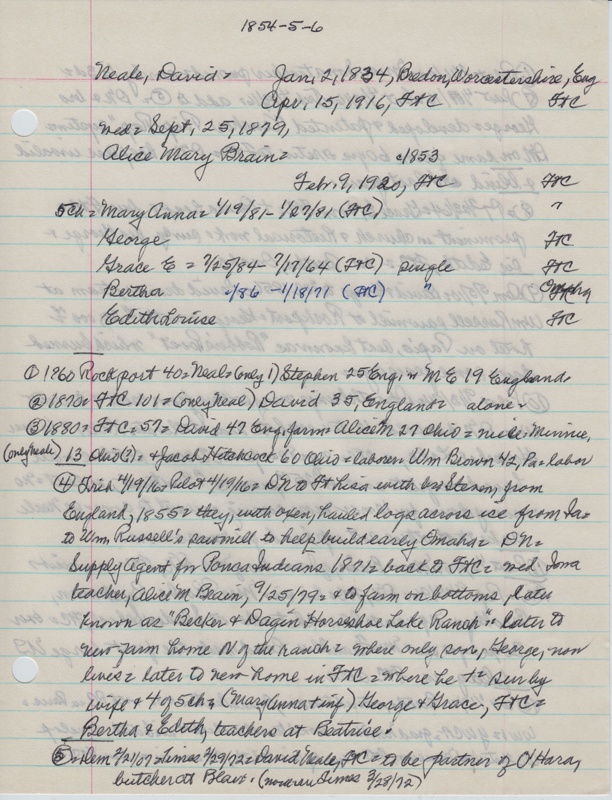 1854-5-6
Neale, David = Jan, 2, 1834, Bredon, Worcestershire, Eng
Apr, 15, 1916, FtC FtC
wed = Sept, 25, 1879,
Alice Mary Brain = c1853
Feb. 9, 1920, FtC FtC
5ch = Mary Anna = 1/19/81 - 1/27/81 (FtC) "
George FtC
Grace E = 7/25/84 - 7/17/64 (FtC) single FtC
Bertha /86 - 1/18/71 (FtC) " Omaha
Edith Louise FtC
① 1860 Rockport 40 = Neal = (only 1) Stephen 25 Eng, = M E 19 England.
② 1870 = FtC 101 = (only Neal) David 35, England = alone.
③ 1880 = FtC = 57 = David 47 Eng, farm = Alice M 27 Ohio = niece, Minnie,
(only Neale) 13 Ohio(?) = & Jacob Hitchcock 60 Ohio = laborer = Wm Brown 42, Pa = labor
④ Trib 4/19/16 = Pilot 4/19/16 = DN to Ft Lisa with bro Steven, from
England, 1855 = they, with oxen, hauled logs across ice from Ia =
to Wm Russell's sawmill to help build early Omaha = DN =
Supply agent for Ponca Indians 1871 = back to FtC = wed Iowa
teacher, Alice M Brain, 9/25/79 = & to farm on bottoms, later
known as "Becker & Dagin Horseshoe Lake Ranch" = later to
new farm home N of the ranch = where only son, George, now
lives = later to new home in FtC = where he + = sur by
wife & 4 of 5 ch = (Mary Anna + inf) George & Grace, FtC =
Bertha & Edith, teachers at Beatrice.
⑤ = Dem 2/21/07 = Times 3/29/72 = David Neale, FtC = to be partner of O'Hara,
butcher at Blair. (Times 3/28/72)